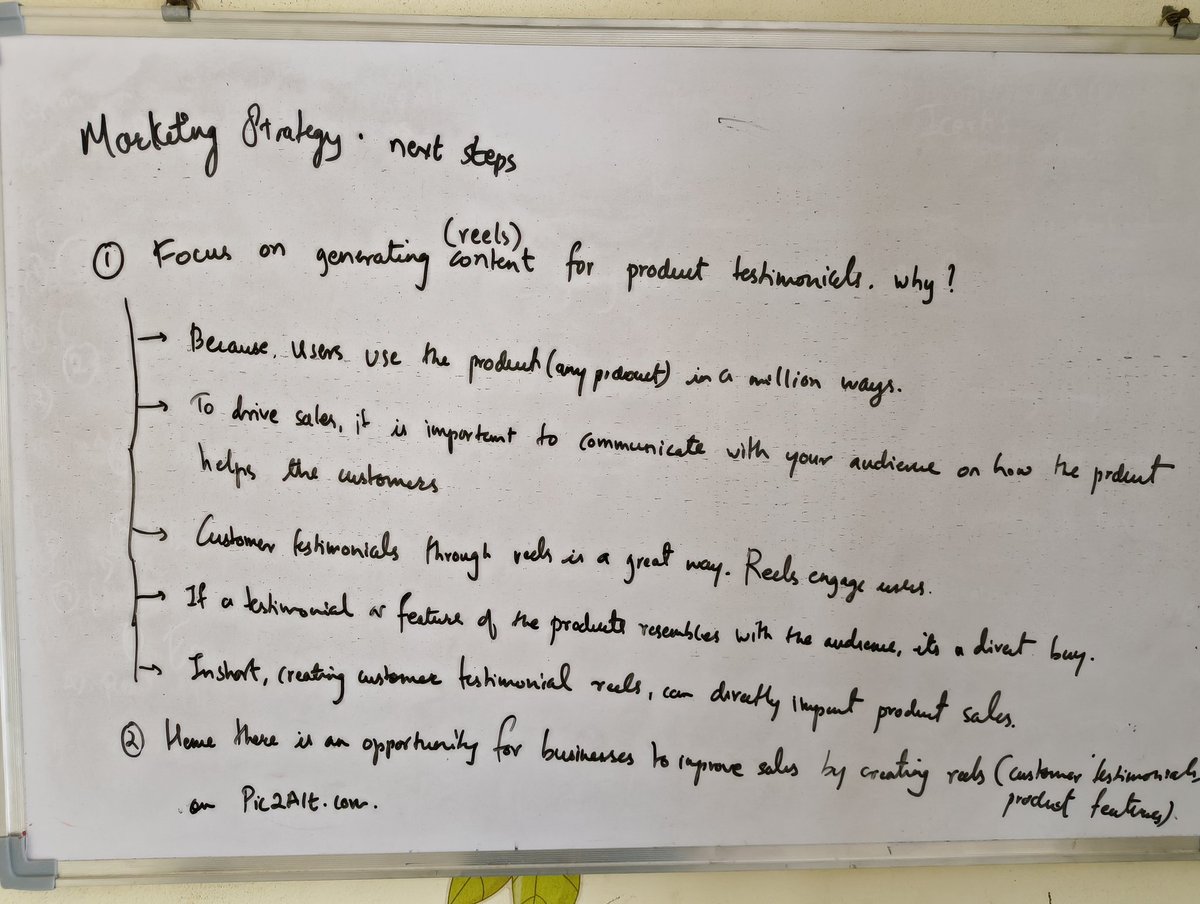 Marketing Strategy . next steps
(reels)
① Focus on generating content for product testimonials. why?
→ Because, users use the product (any product) in a million ways.
→ To drive sales, it is important to communicate with your audience on how the product
helps the customers
→ Customer testimonials through reels is a great way. Reels engage users.
→ If a testimonial or feature of the products resembles with the audience, its a direct buy.
→ Inshort, creating customer testimonial reels, can directly impact product sales.
② Hence there is an opportunity for businesses to improve sales by creating reels (customer testimonials,
product features).
on Pic2Alt.com.